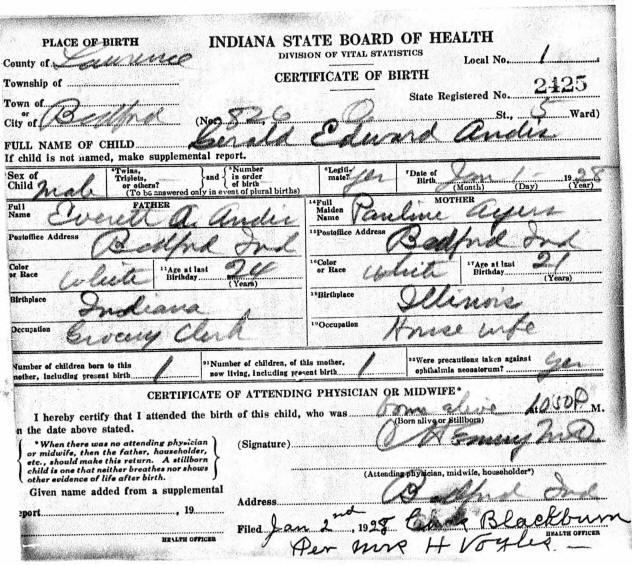 PLACE OF BIRTH
INDIANA STATE BOARD OF HEALTH
DIVISION OF VITAL STATISTICS
CERTIFICATE OF BIRTH
County of Lawrence
Local No. 1
Township of
State Registered No. 2425
Town of
or
City of Bedford (No. 826 O St., 5 Ward)
FULL NAME OF CHILD Gerald Edward Andis
If child is not named, make supplemental report.
Sex of Child Male
*Twins, Triplets, or others? and *Number in order of birth
(To be answered only in event of plural births)
*Legitimate? yes
*Date of Birth Jan 1 - 1928
(Month) (Day) (Year)
FATHER
Full Name Everett A. Andis
Postoffice Address Bedford Ind
Color or Race White
11Age at last Birthday 24
(Years)
Birthplace Indiana
Occupation Grocery Clerk
MOTHER
14Full Maiden Name Pauline Ayers
15Postoffice Address Bedford Ind
16Color or Race White
17Age at last Birthday 21
(Years)
18Birthplace Illinois
19Occupation House wife
Number of children born to this mother, including present birth 1
21Number of children, of this mother, now living, including present birth 1
22Were precautions taken against ophthalmia neonatorum? yes
CERTIFICATE OF ATTENDING PHYSICIAN OR MIDWIFE*
I hereby certify that I attended the birth of this child, who was born alive at 1050 P M.
(Born alive or Stillborn)
n the date above stated.
*When there was no attending physician
or midwife, then the father, householder,
etc., should make this return. A stillborn
child is one that neither breathes nor shows
other evidence of life after birth.
(Signature) M.D.
(Attending physician, midwife, householder*)
Given name added from a supplemental
eport , 19
HEALTH OFFICER
Address Bedford Ind
Filed Jan 2nd, 1928 Blackburn
HEALTH OFFICER
Per Mrs H Voyles